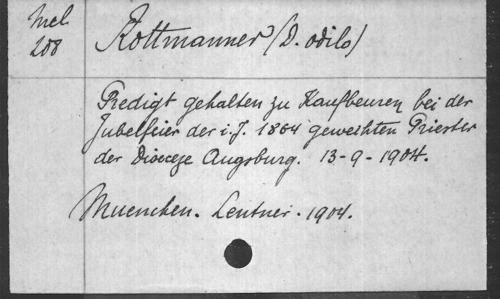 Mel
208
Rottmanner (D. odilo)
Predigt gehalten zu Kaufbeuren bei der
Jubelfeier der i. J. 1864 geweihten Priester
der Diöceze Augsburg. 13-9-1904.
Muenchen. Lentner. 1904.